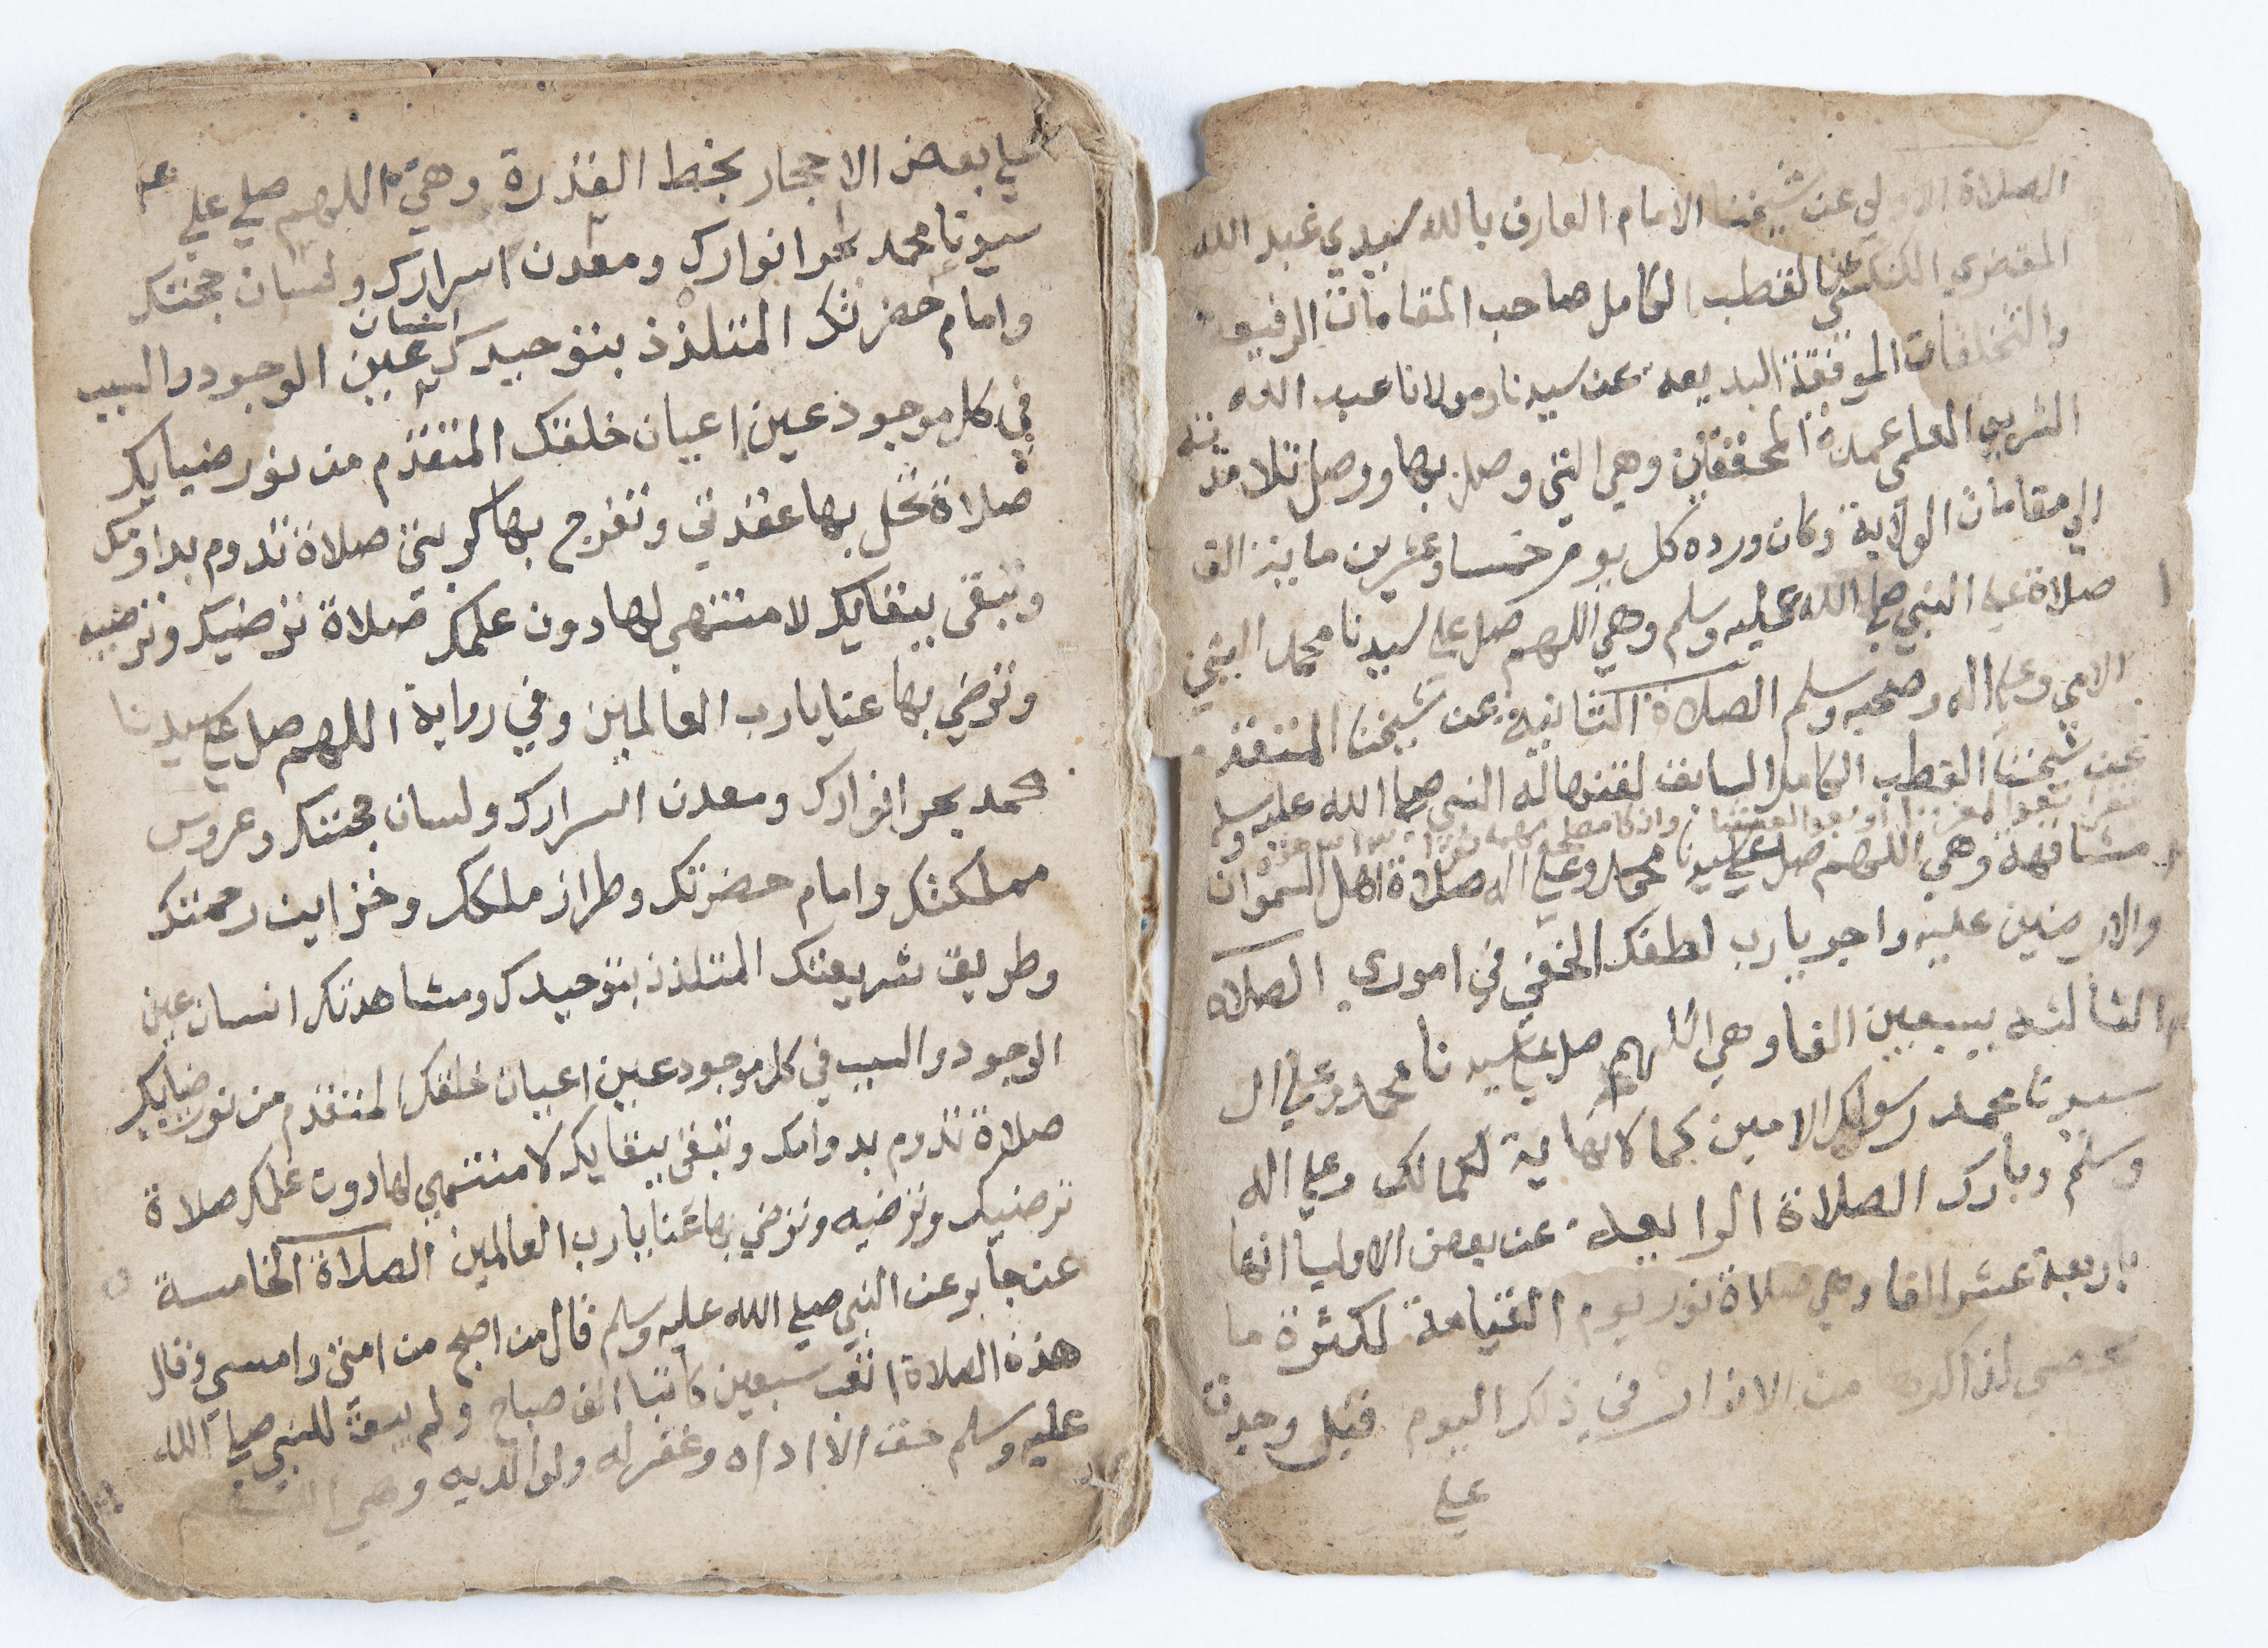 الصلاة الاولي عن شيخنا الامام العارف بالله سيدي عبد الله
القطب الكامل صاحب المقامات الرفيعه
والتخلقات الموفقة البديعه عن سيدنا ومولانا عبد الله
الشريف العلمي عمدة المحققين وهي التي وصل بها ووصل تلامذته
الي مقامات الولاية وكان ورده كل يوم خمسا وعشرين ماية الف
صلاة علي النبي صلي الله عليه وسلم وهي اللهم صل علي سيدنا محمد النبي
الامي وعلي اله وصحبه وسلم الصلاة الثانية عن شيخنا المتقدم
عن شيخنا القطب الكامل السابق لقنها له النبي صلي الله عليه وسلم
مشافهة وهي اللهم صل علي سيدنا محمد وعلي اله صلاة اهل السموات
والارضين عليه واجر يا رب لطفك الخفي في اموري الصلاة
الثالثه بسبعين الفا وهي اللهم صل علي سيدنا محمد وعلي ال
سيدنا محمد رسولك الامين كما لا نهاية لكمالك وعلي اله
وسلم وبارك الصلاة الرابعة عن بعض الاوليا انها
باربعة عشر الفا وهي صلاة نور يوم القيامة لكثرة ما
يحصي لذاكره من الانوار في ذكر اليوم قيل وجدت
علي
علي بعض الاحجار بخط القدرة وهي اللهم صلي علي
سيدنا محمد بحر انوارك ومعدن اسرارك ولسان حجتك
وامام حضرتك المتلذذ بتوحيدك انسان عين الوجود والسبب
في كل موجود عين اعيان خلقك المتقدم من نور ضيايك
صلاة تحل بها عقدتي وتفرج بها كربتي صلاة تدوم بدوامك
وتبقي ببقايك لا منتهي لها دون علمك صلاة ترضيك وترضيه
وترضي بها عنا يا رب العالمين وفي رواية اللهم صل علي سيدنا
محمد بحر انوارك ومعدن اسرارك ولسان حجتك وعروس
مملكتك وامام حضرتك وطراز ملكك وخزاين رحمتك
وطريق شريعتك المتلذذ بتوحيدك ومشاهدتك انسان عين
الوجود والسبب في كل موجود عين اعيان خلقك المتقدم من نور ضيايك
صلاة تدوم بدوامك وتبقي ببقايك لا منتهي لها دون علمك صلاة
ترضيك وترضيه وترضي بها عنا يا رب العالمين الصلاة الخامسة
عن جابر عن النبي صلي الله عليه وسلم قال من اصبح من امتي وامسي وقال
هذه الصلاة اتعب سبعين كاتبا الف صباح ولم يبق للنبي صلي الله
عليه وسلم حق الا اداه وغفر له ولوالديه وهي اللهم